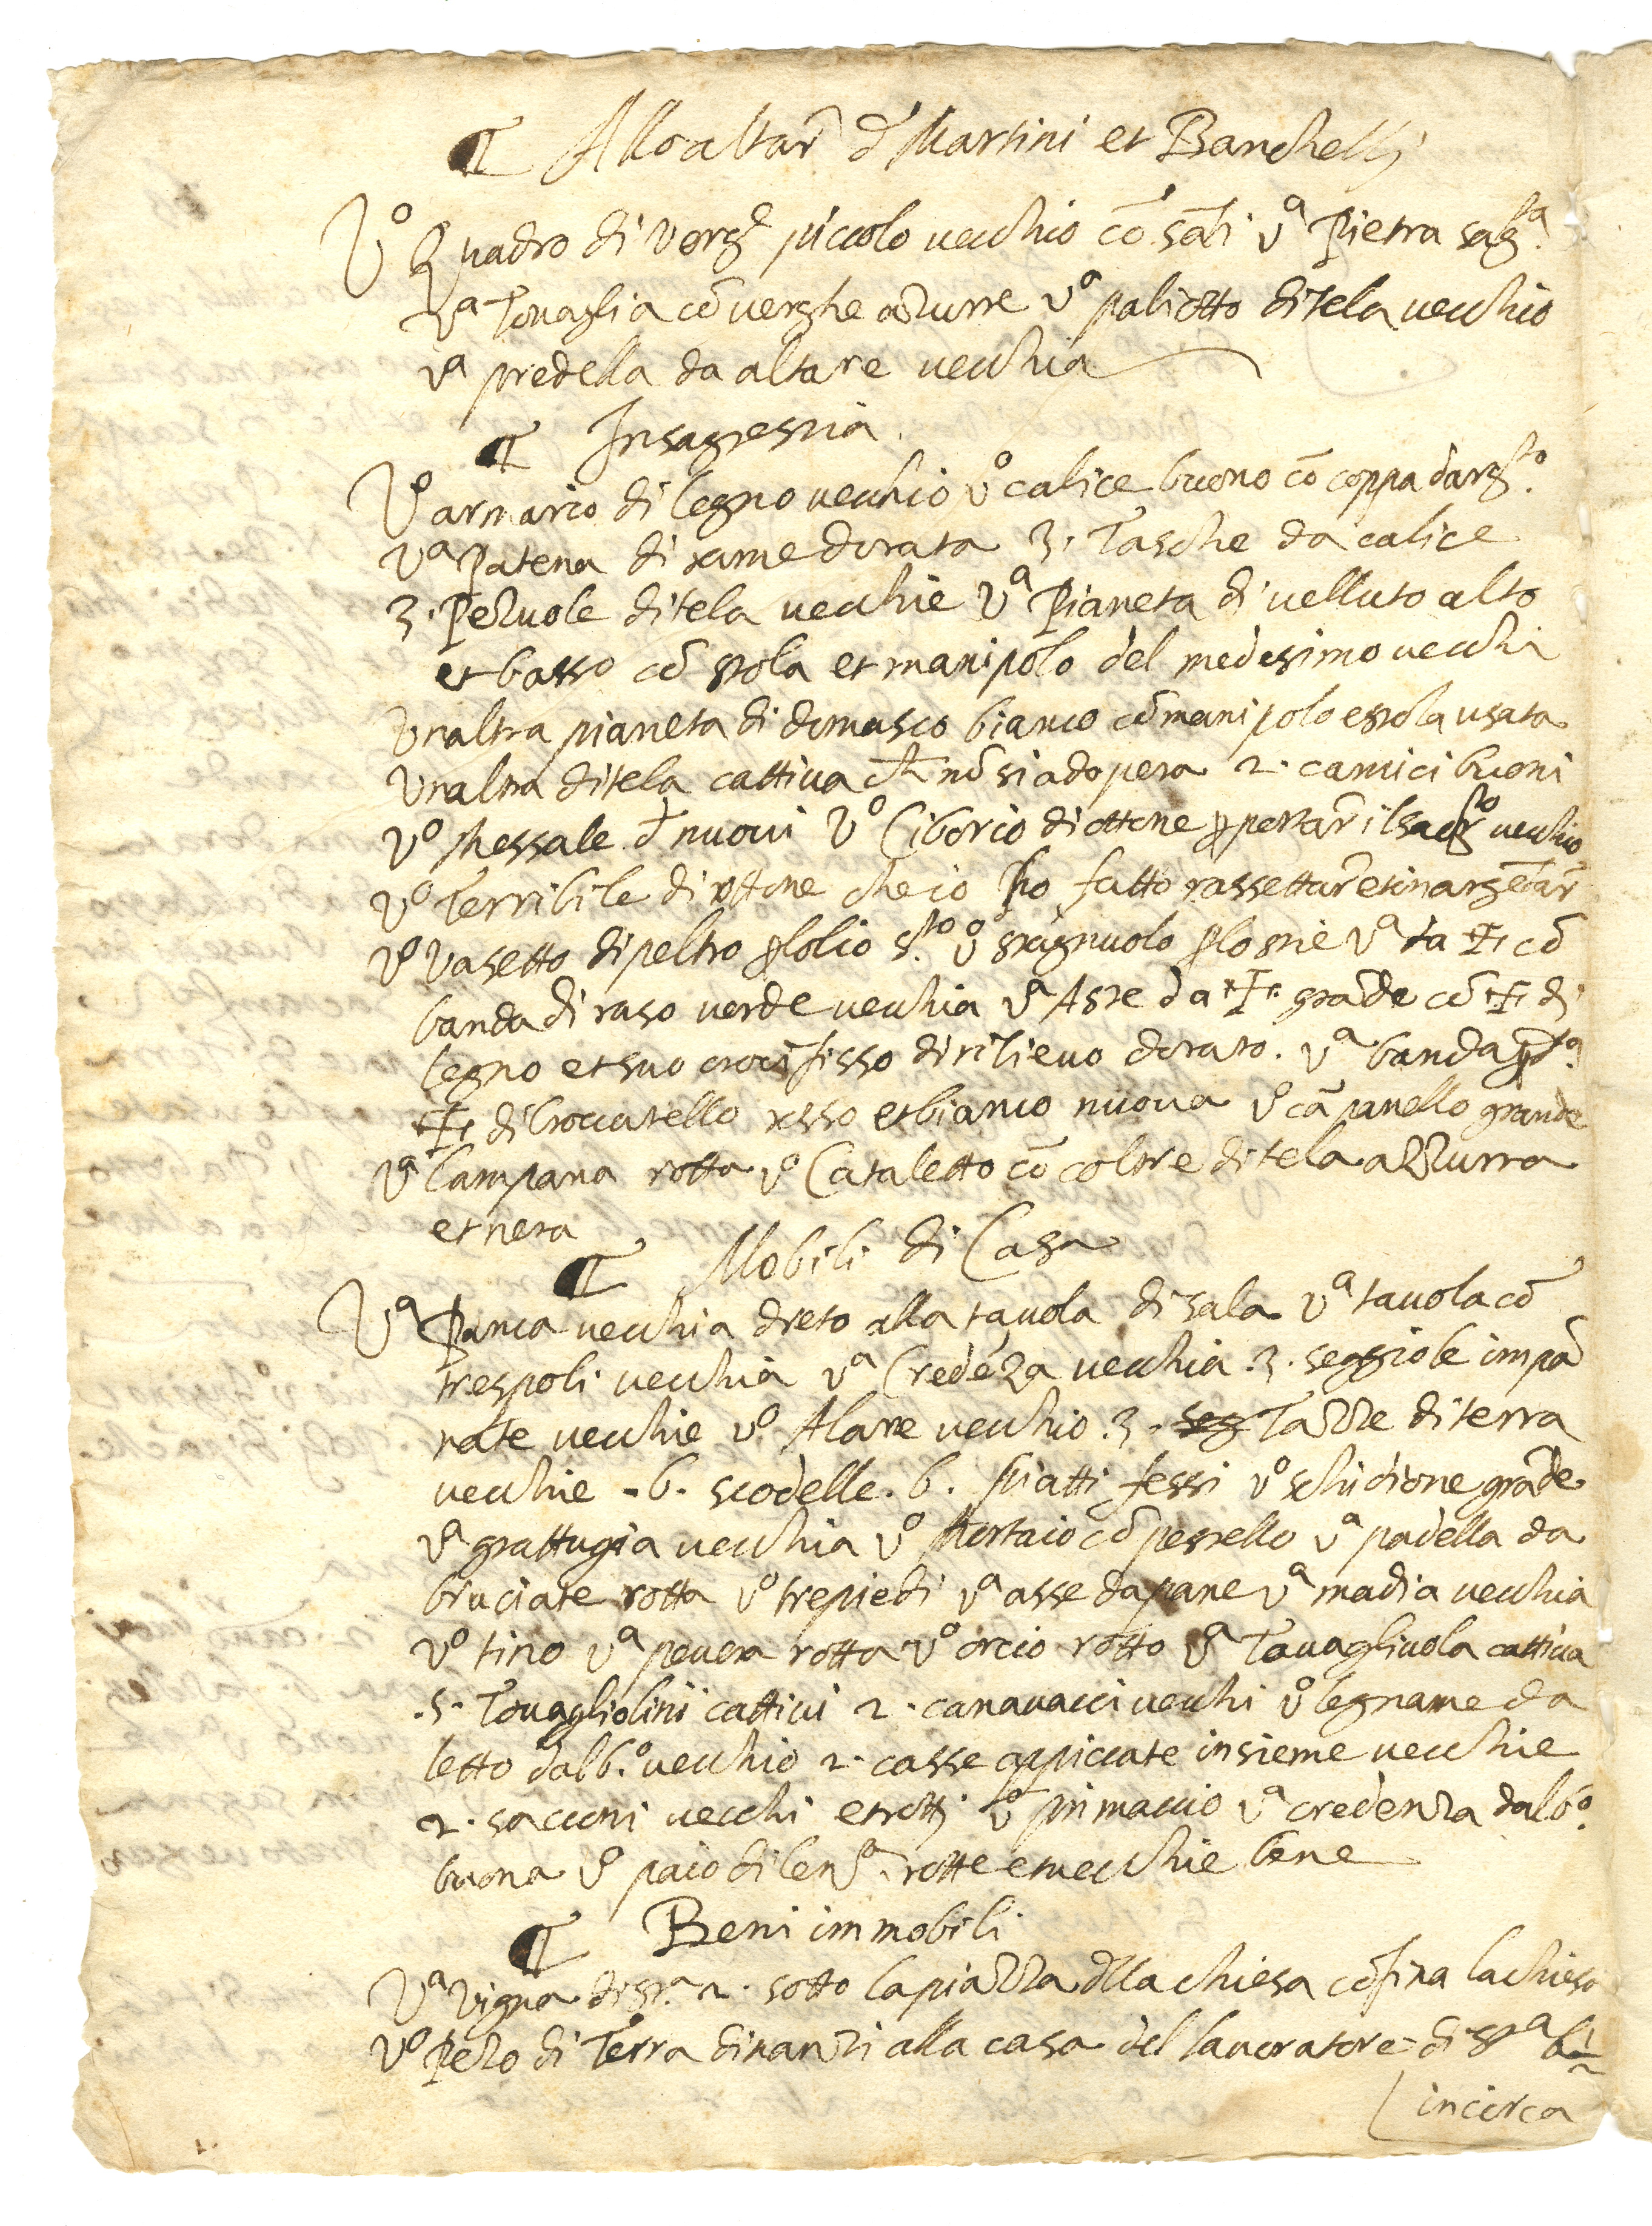 ¶ Allo altar̃ d Martini et Banchelli
Vº Quadro di Verg.e piccolo vecchio cõ sãti vª Pietra sag.ta
vª Tovaglia cõ verghe azurre vº paliotto di tela vecchio
vª predella da altare vecchia
¶ In sagrestia.
Vº armario di legno vecchio vº calice buono cõ coppa darg.to
vª Patena di rame dorata 3. Tasche da calice
3. Pezuole di tela vecchie vª Pianeta di velluto alto
et basso cõ stola et manipolo del medesimo vecchi
unaltra pianeta di domasco bianco cõ manipolo e stola usata
unaltra di tela cattiva ch̃ nõ si adopera 2. camici buoni
vº Messale d nuovi vº Ciborio di ottone ꝑ portar̃ il sagr.to vecchio
vº Terribile di ottone che io ho fatto rassettar̃ et inargẽtar̃
vº vasetto di peltro ꝑ lolio s.to vº stagnuolo ꝑ lostie vª da ✝ cõ
banda di raso verde vecchia vª Aste da ✝ grãde cõ ✝ di
legno et suo crocifisso di rilievo dorato. vª banda ꝑ d.ª
✝ di broccatello rosso et bianco nuova vº cãpanello grande
vª Campana rotta vº Cataletto cõ coltre di tela azzurra
et nera
¶ Mobili di Casa
Vª Panca vecchia dreto alla tavola di sala vª tavola cõ
trespoli vecchia vª Credẽza vecchia .3. seggiole impã
nate vecchie vº Alare vecchio .3. seg Tazze di terra
vecchie .6. scodelle .6. Piatti fessi vº schidione grãde
vª grattugia vecchia vº Mortaio cõ pestello vª padella da
bruciate rotta vº trepiedi vª asse da pane vª madia vecchia
vº tino vª pevera rotta vº orcio rotto vª Tovagliuola cattiva
.5. Tovagliolini cattivi 2. canavacci vecchi vº legname da
letto dalb.º vecchio 2. casse appiccate insieme vecchie
2. sacconi vecchi et rotti vº primaccio vª credenza dalb.º
buona vº paio di len.ª rotte e vecchie bene
¶ Beni immobili
Vª Vigna di st.ª 2. sotto la piazza dlla chiesa cõfina la chiesa
vº Pezo di Terra dinanzi alla casa del lavoratore di st.ª
in circa